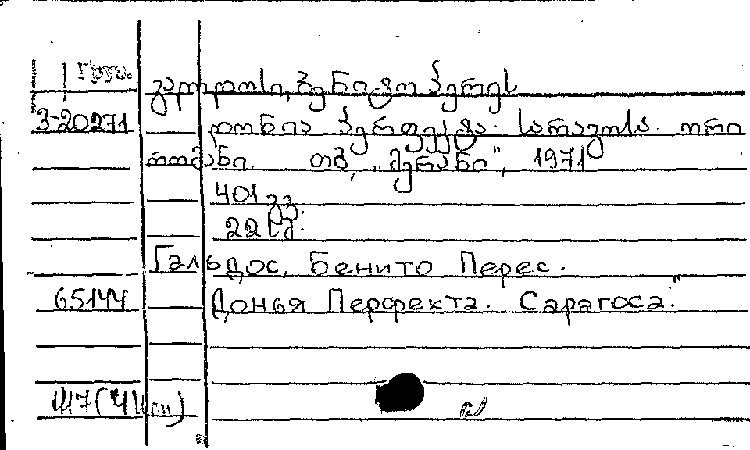 Груз.
გალდოსი, ბენიტო პერეს
3-20271 დონია პერფექტა. სარაგოსა. ორი
რომანი. თბ, „მერანი", 1971
401 გვ.
22 სმ.
Гальдос, Бенито Перес.
65144 Донья Перфекта. Сарагоса."